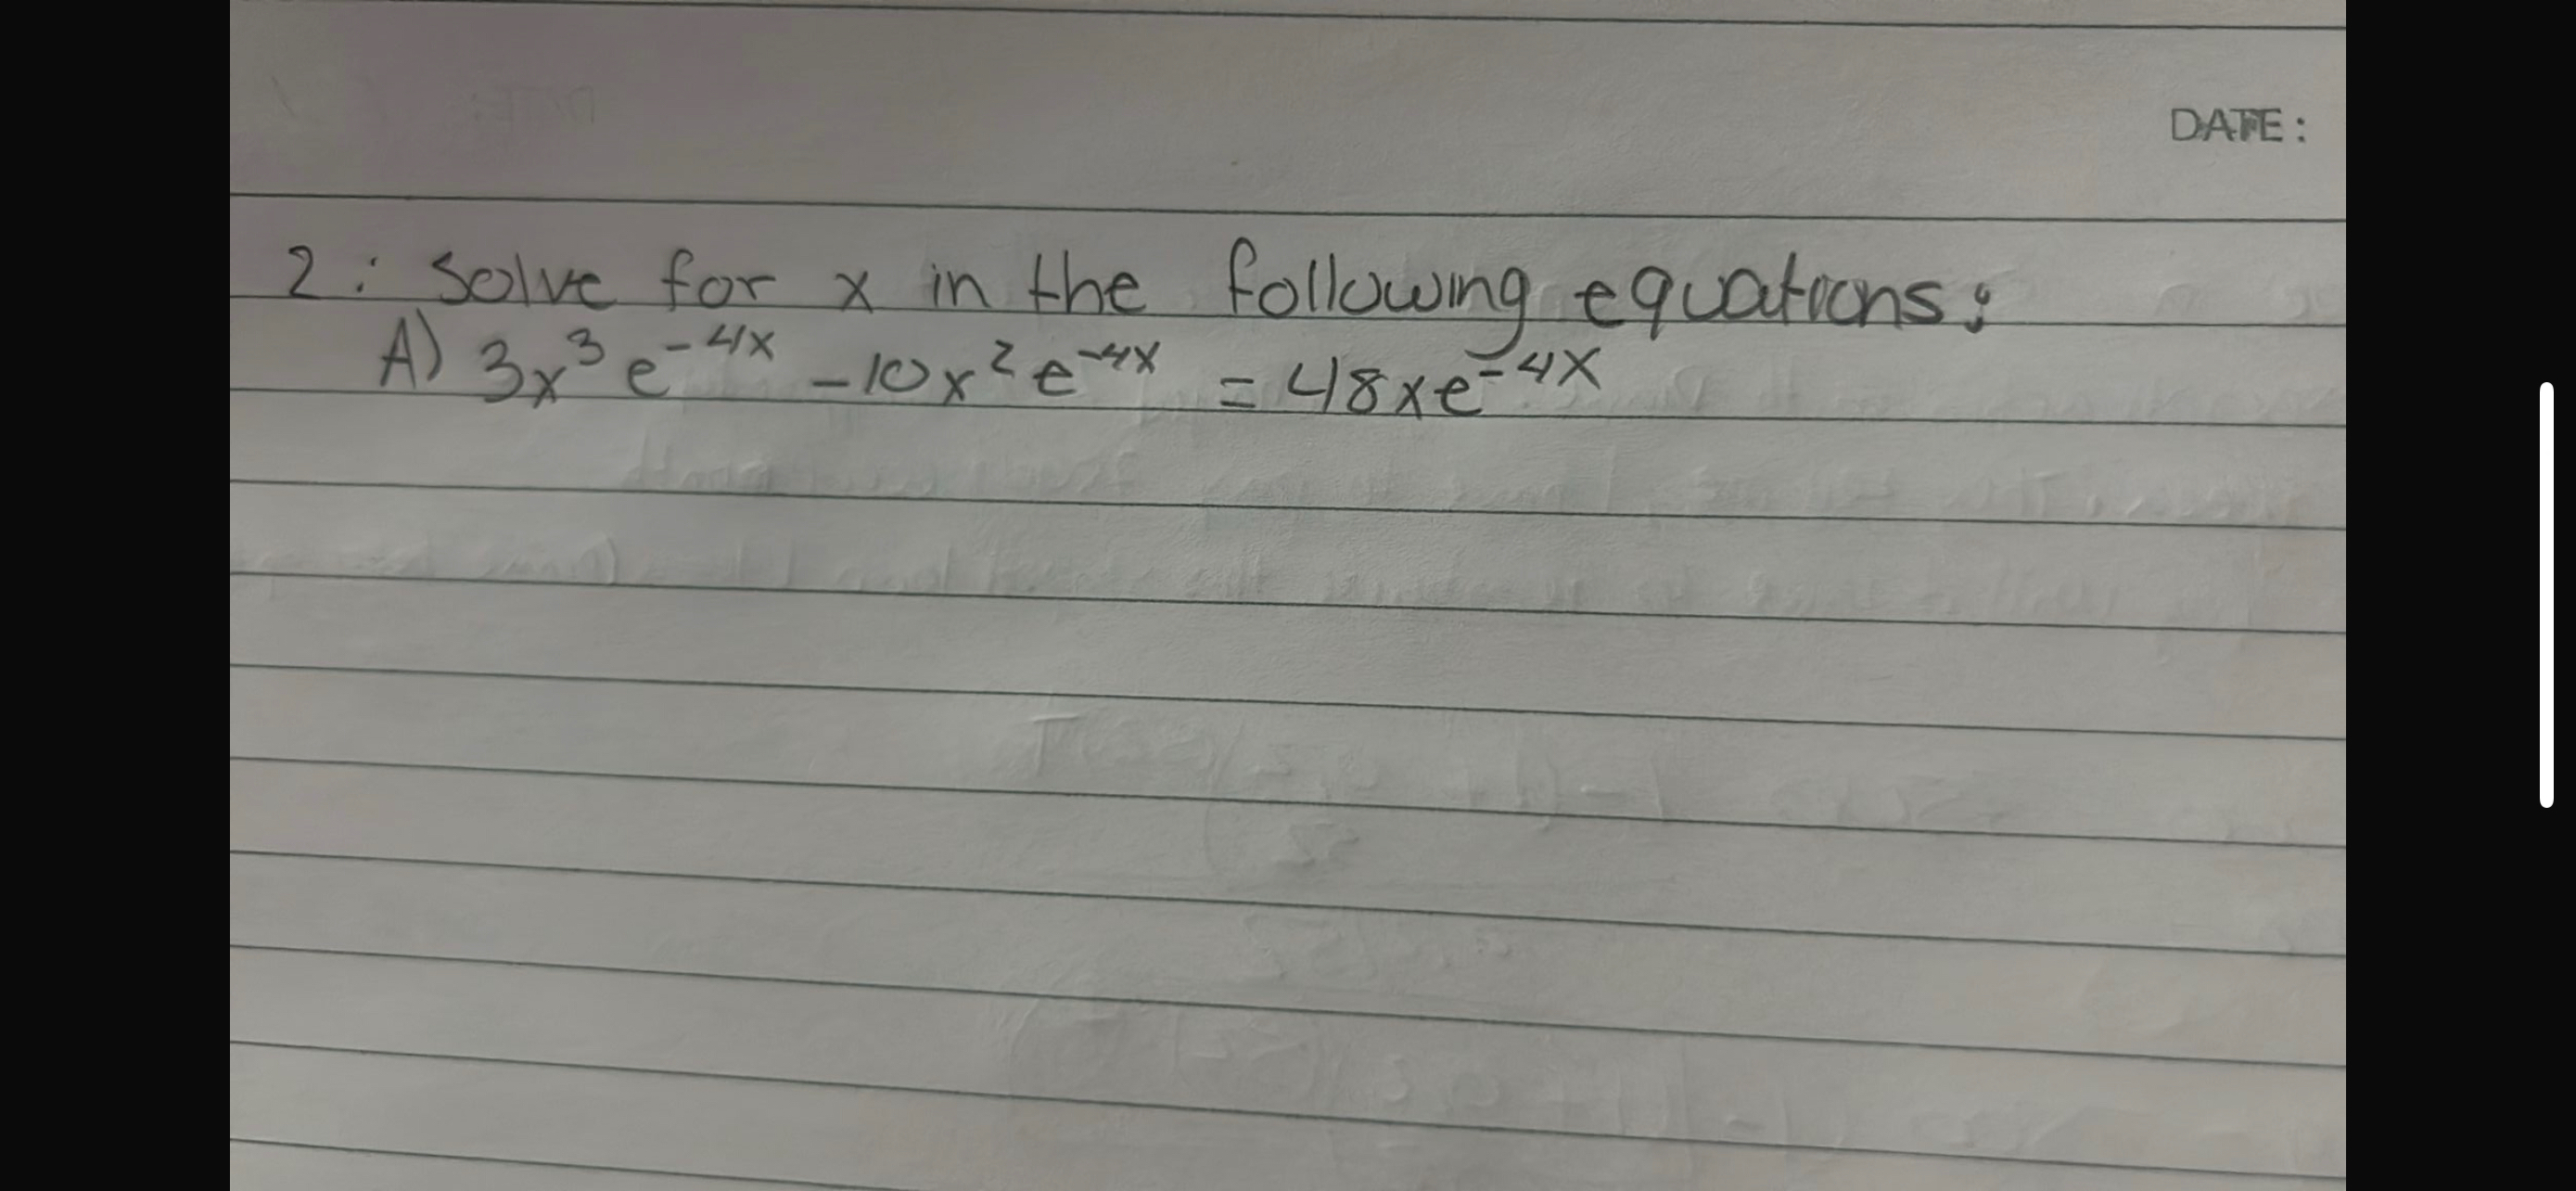 DATE:
2: Solve for x in the following equations:
A) 3x³e⁻⁴ˣ - 10x²e⁻⁴ˣ = 48xe⁻⁴ˣ